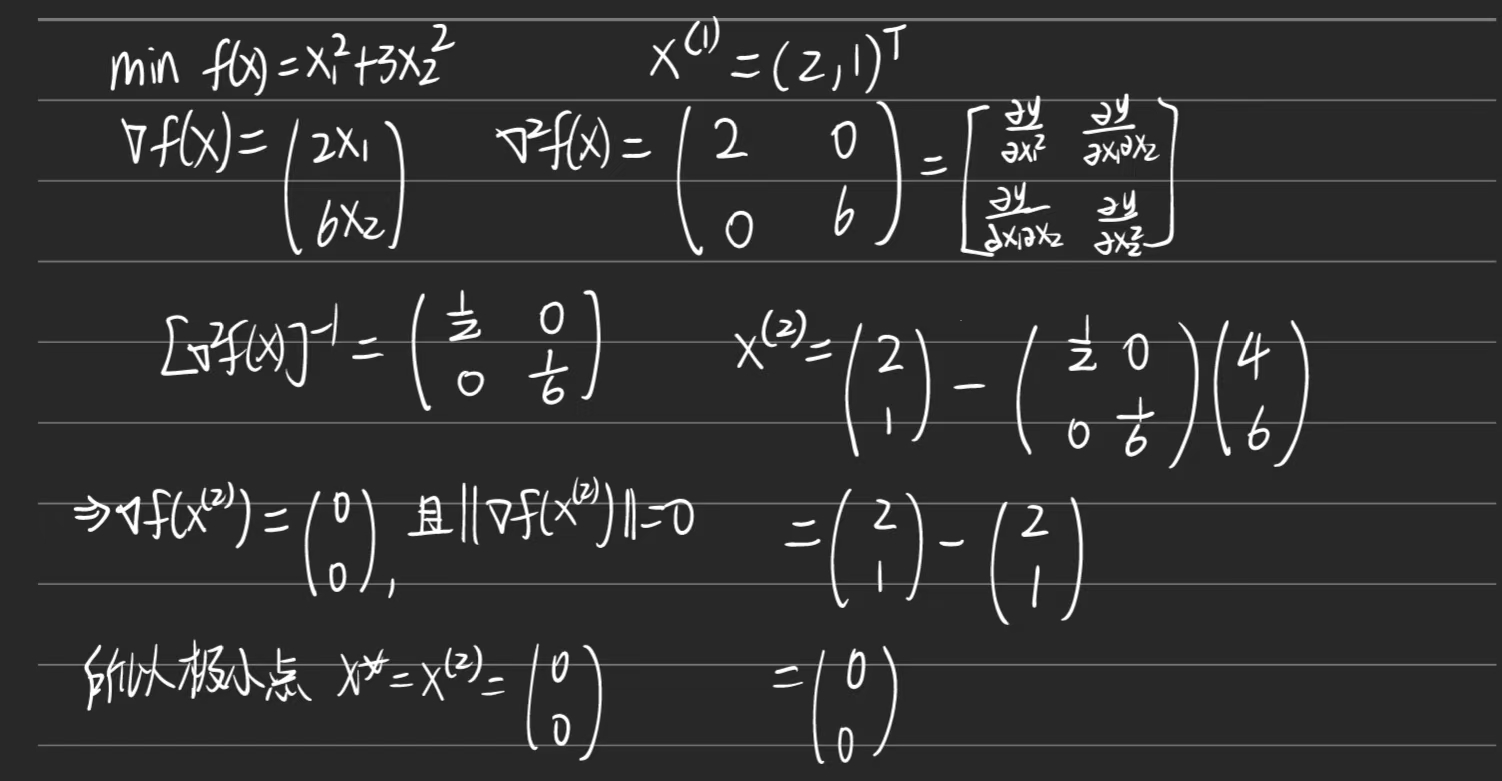 min f(x)=x₁²+3x₂² x⁽¹⁾=(2,1)ᵀ
∇f(x)=(2x₁ 6x₂) ∇²f(x)=(2 0 0 6)=[∂y/∂x₁² ∂y/∂x₁∂x₂ ∂y/∂x₁∂x₂ ∂y/∂x₂²]
[∇²f(x)]⁻¹=(1/2 0 0 1/6) x⁽²⁾=(2 1)-(1/2 0 0 1/6)(4 6)
⇒∇f(x⁽²⁾)=(0 0), 且||∇f(x⁽²⁾)||=0 =(2 1)-(2 1)
所以极小点 x*=x⁽²⁾=(0 0) =(0 0)